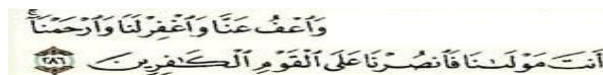 وَٱعْفُ عَنَّا وَٱغْفِرْ لَنَا وَٱرْحَمْنَآۚ
أَنتَ مَوْلَىٰنَا فَٱنصُرْنَا عَلَى ٱلْقَوْمِ ٱلْكَـٰفِرِينَ ٢٨٦